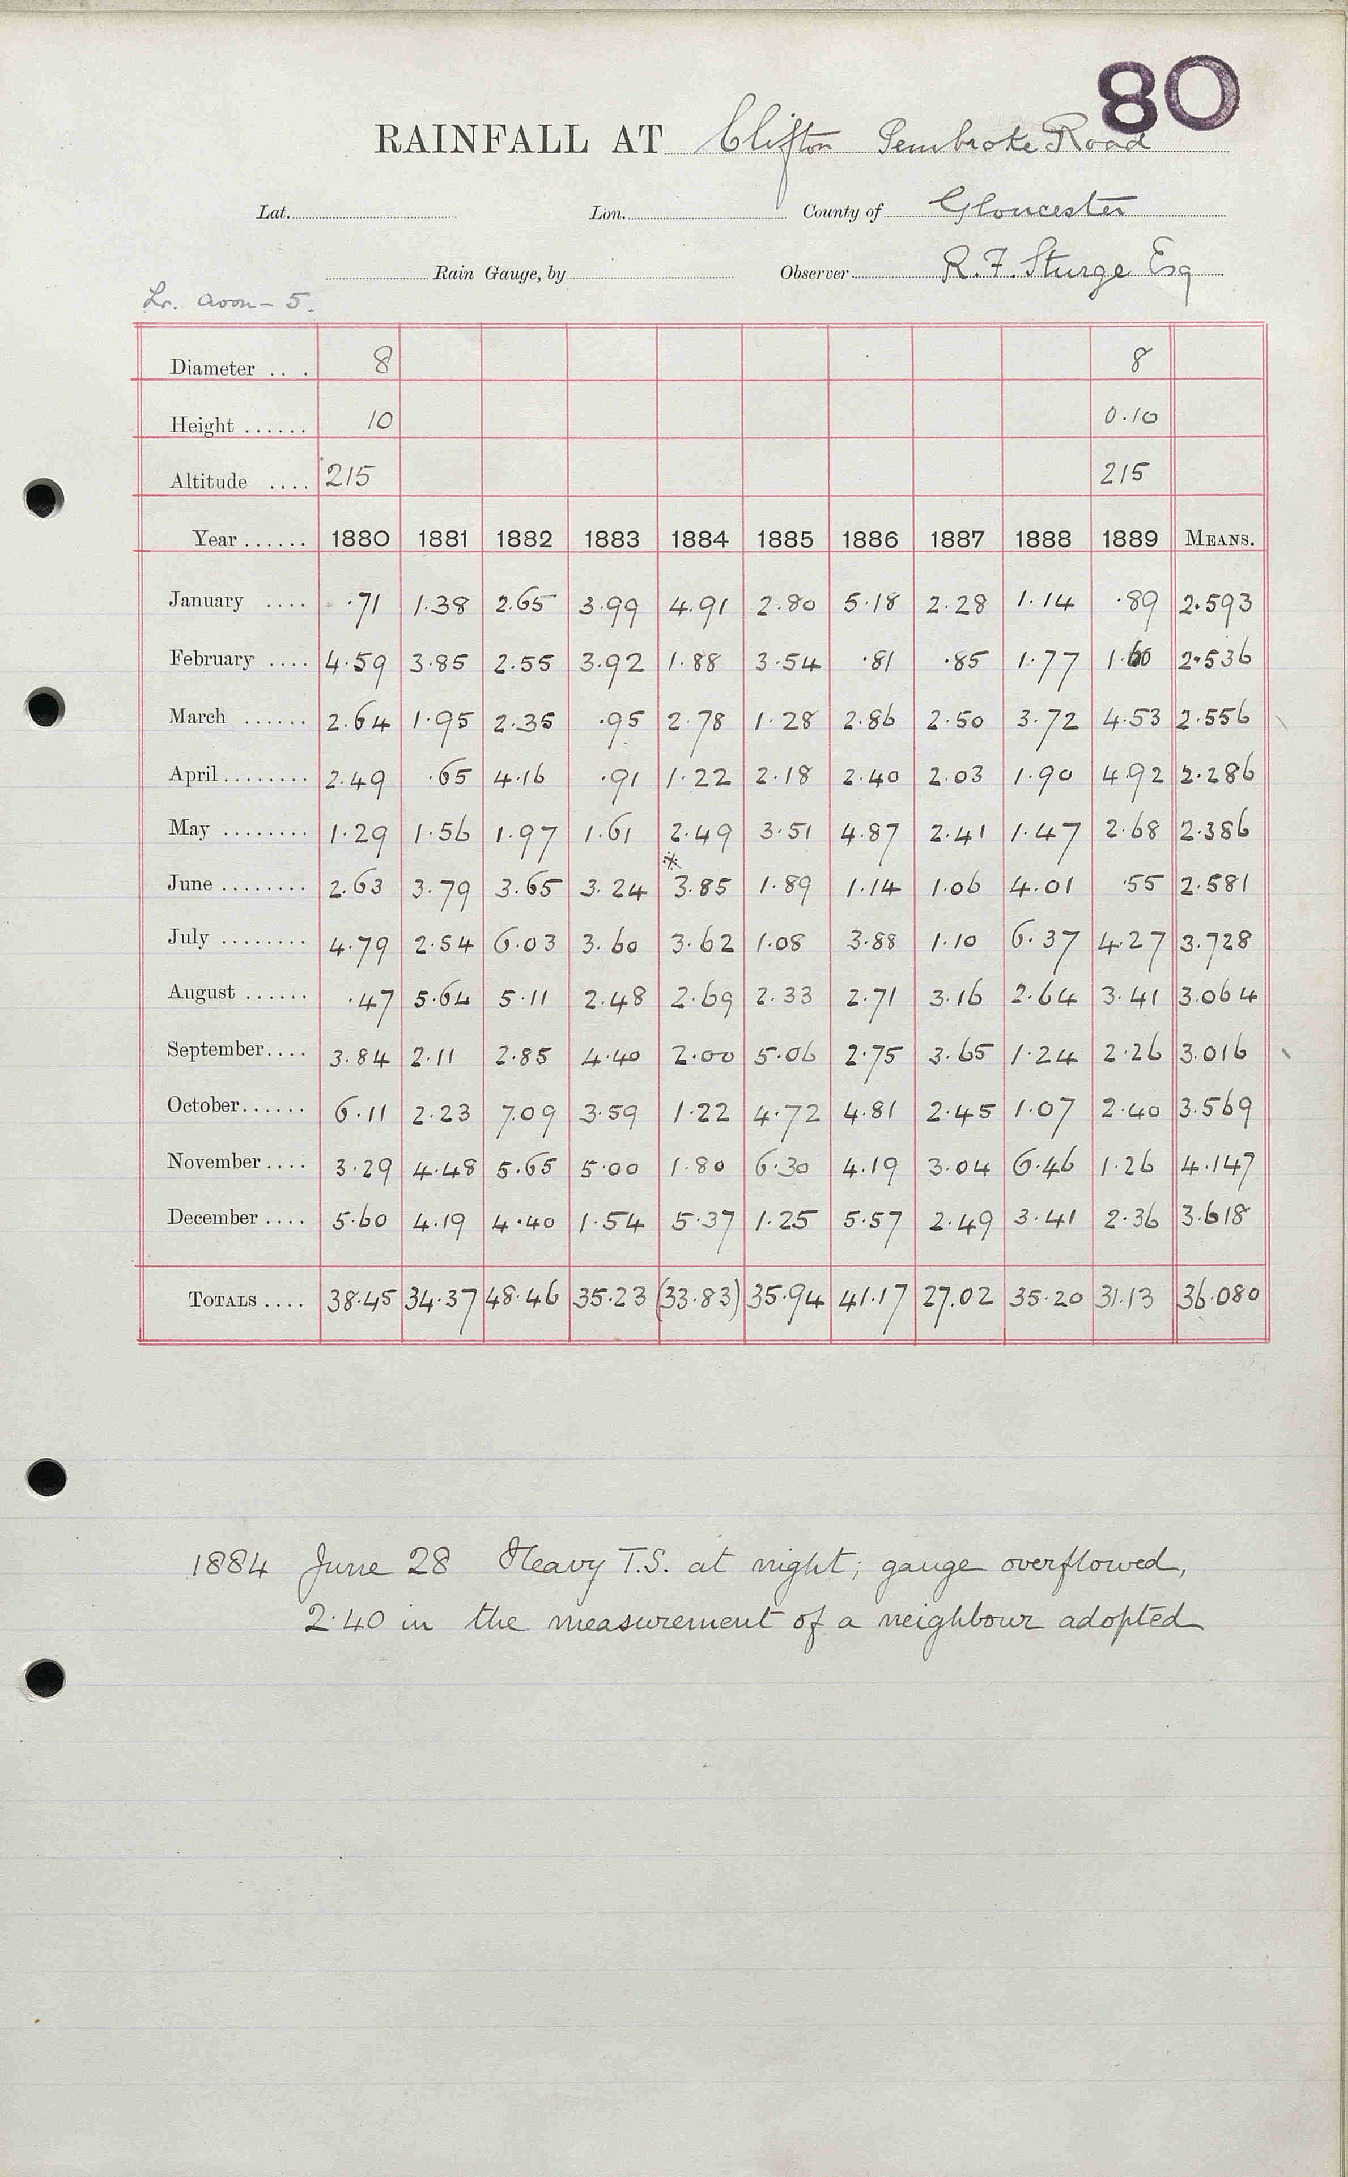 80
RAINFALL AT Clifton Pembroke Road
Lat. Lon. County of Gloucester
Rain Gauge, by Observer R. F. Sturge Esq
Lr. Avon - 5.
Diameter ... 8 8
Height ...... 10 0.10
Altitude .... 215 215
Year ...... 1880 1881 1882 1883 1884 1885 1886 1887 1888 1889 MEANS.
January .... .71 1.38 2.65 3.99 4.91 2.80 5.18 2.28 1.14 .89 2.593
February .... 4.59 3.85 2.55 3.92 1.88 3.54 .81 .85 1.77 1.60 2.536
March ...... 2.64 1.95 2.35 .95 2.78 1.28 2.86 2.50 3.72 4.53 2.556
April ........ 2.49 .65 4.16 .91 1.22 2.18 2.40 2.03 1.90 4.92 2.286
May ........ 1.29 1.56 1.97 1.61 2.49 3.51 4.87 2.41 1.47 2.68 2.386
June ........ 2.63 3.79 3.65 3.24 *3.85 1.89 1.14 1.06 4.01 .55 2.581
July ........ 4.79 2.54 6.03 3.60 3.62 1.08 3.88 1.10 6.37 4.27 3.728
August ...... .47 5.64 5.11 2.48 2.69 2.33 2.71 3.16 2.64 3.41 3.064
September.... 3.84 2.11 2.85 4.40 2.00 5.06 2.75 3.65 1.24 2.26 3.016
October...... 6.11 2.23 7.09 3.59 1.22 4.72 4.81 2.45 1.07 2.40 3.569
November.... 3.29 4.48 5.65 5.00 1.80 6.30 4.19 3.04 6.46 1.26 4.147
December .... 5.60 4.19 4.40 1.54 5.37 1.25 5.57 2.49 3.41 2.36 3.618
TOTALS .... 38.45 34.37 48.46 35.23 (33.83) 35.94 41.17 27.02 35.20 31.13 36.080
1884 June 28 Heavy T.S. at night; gauge overflowed,
2.40 in the measurement of a neighbour adopted